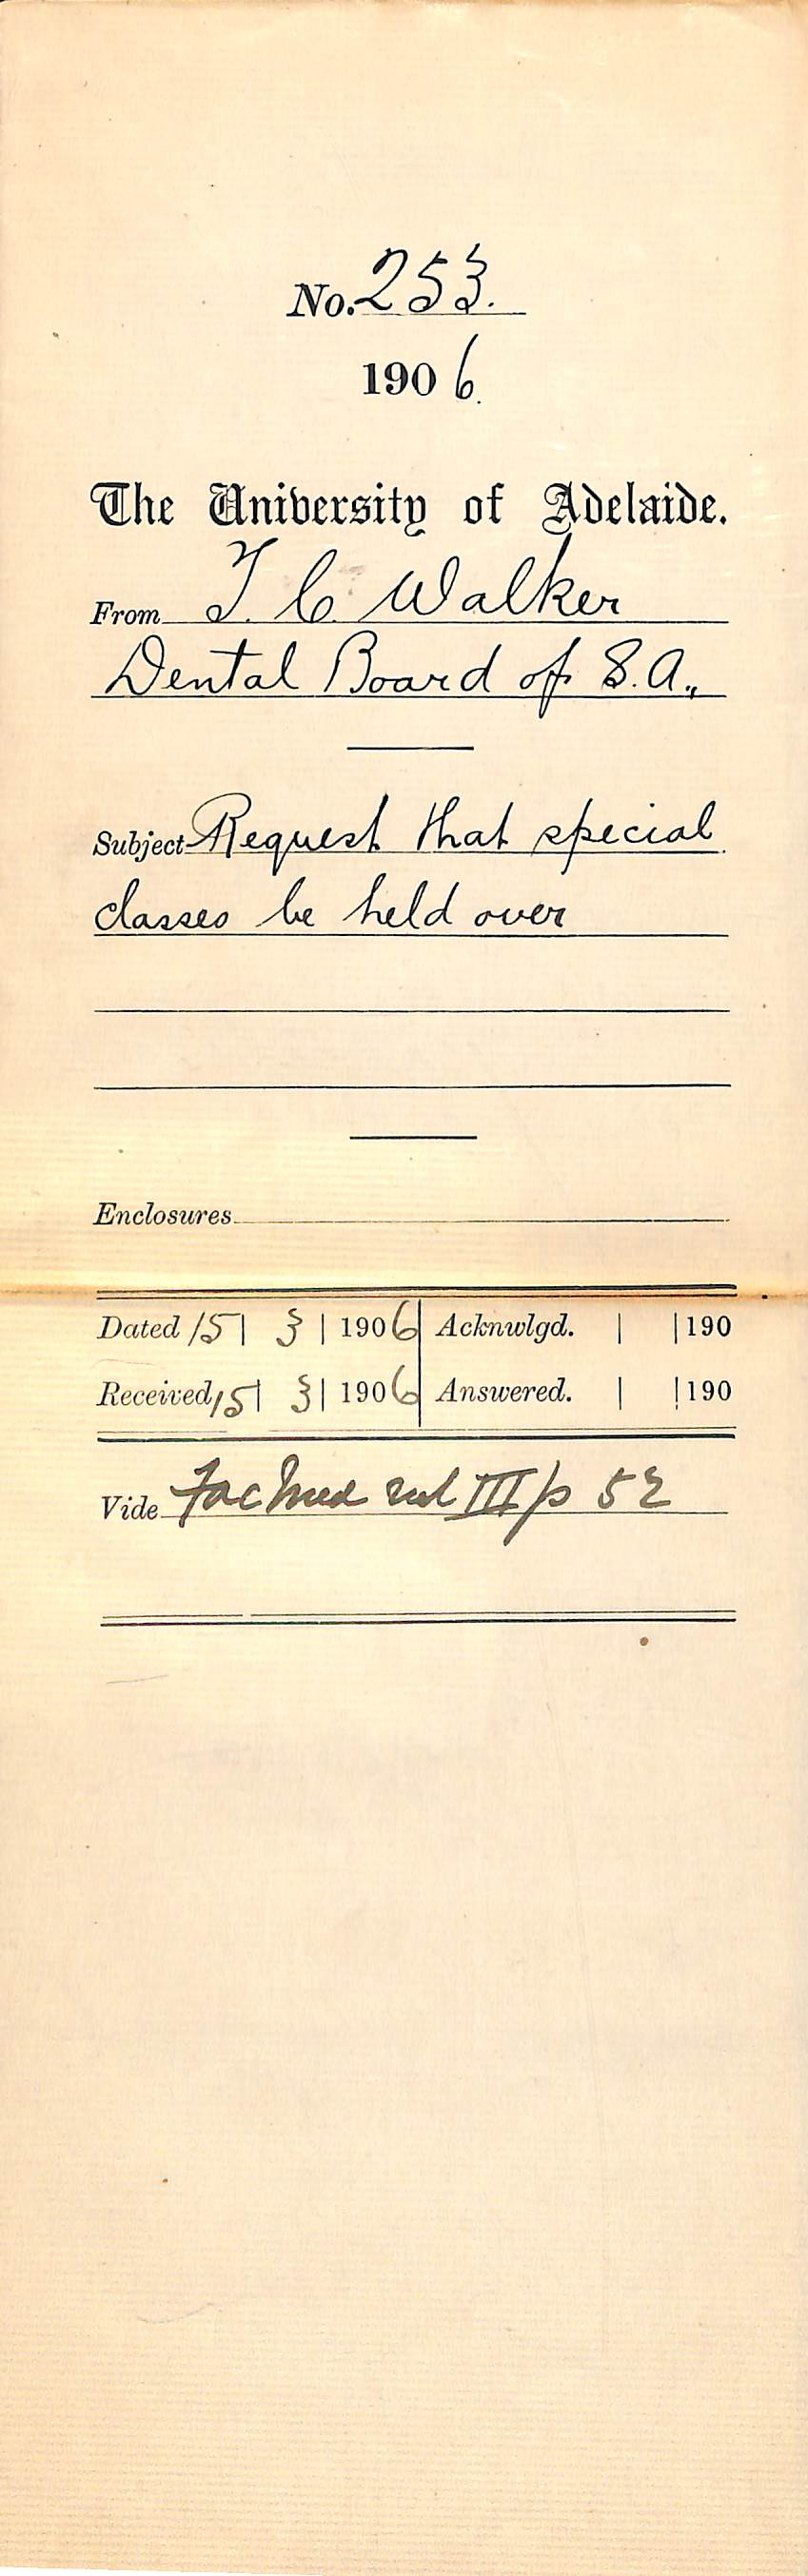 No. 253.
1906.
The University of Adelaide.
From T. C. Walker
Dental Board of S.A.,
Subject Request that special
classes be held over
Enclosures
Dated 15 | 3 | 1906 Acknwlgd. | | 190
Received 15 | 3 | 1906 Answered. | | 190
Vide Fac Med vol III p 52